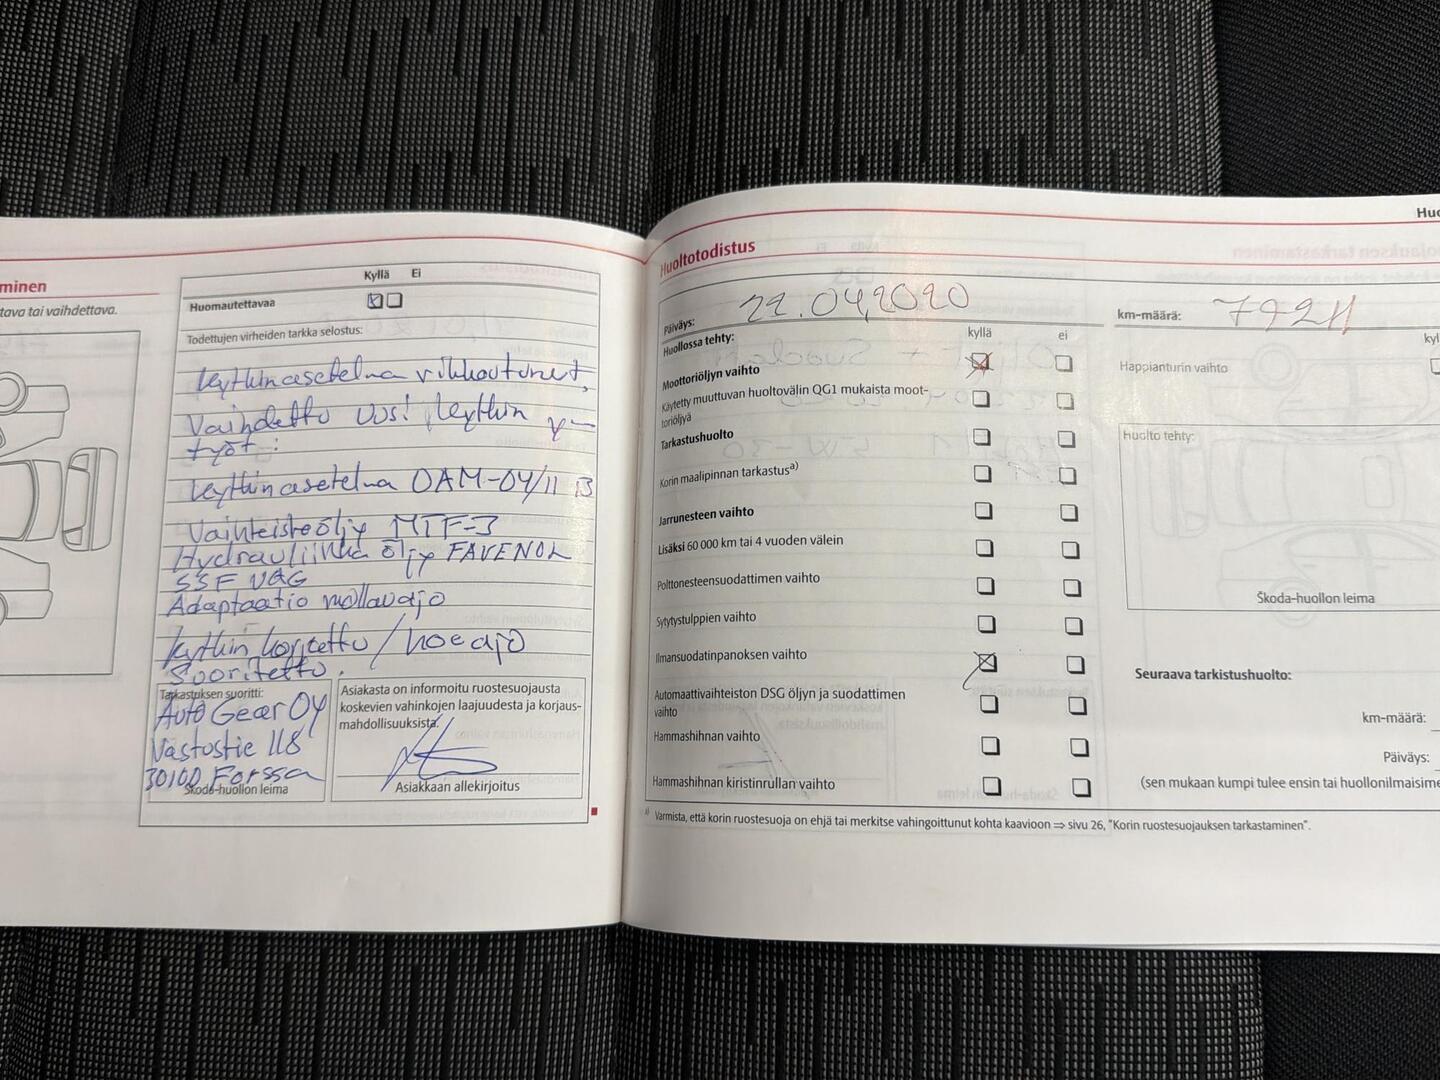 minen
tava tai vaihdettava.
Kyllä Ei
Huomautettavaa
Todettujen virheiden tarkka selostus:
kytkinasetelma vikkoutunut,
Vaihdettu uusi kytkin
työt:
kytkinasetelma OAM-04/11
Vaihteistoöljy MTF-3
Hydrauliikka öljy FAVENOL
SSF VAG
Adaptaatio nollaajo
kytkin korjattu / koeajo
Suoritettu.
Tarkastuksen suoritti:
Auto Gear OY
Vastustie 118
30100 Forssa
Škoda-huollon leima
Asiakasta on informoitu ruostesuojausta
koskevien vahinkojen laajuudesta ja korjaus-
mahdollisuuksista.
Asiakkaan allekirjoitus
Huo
Huoltotodistus
Päiväys: 22.04.2020
km-määrä: 79211
Huollossa tehty: kyllä ei
Moottoriöljyn vaihto
Käytetty muuttuvan huoltovälin QG1 mukaista moot-
toriöljyä
Tarkastushuolto
Korin maalipinnan tarkastus a)
Jarrunesteen vaihto
Lisäksi 60 000 km tai 4 vuoden välein
Polttonesteensuodattimen vaihto
Sytytystulppien vaihto
Ilmansuodatinpanoksen vaihto
Automaattivaihteiston DSG öljyn ja suodattimen
vaihto
Hammashihnan vaihto
Hammashihnan kiristinrullan vaihto
kyl
Happianturin vaihto
Huolto tehty:
Škoda-huollon leima
Seuraava tarkistushuolto:
km-määrä:
Päiväys:
(sen mukaan kumpi tulee ensin tai huollonilmaisime
a) Varmista, että korin ruostesuoja on ehjä tai merkitse vahingoittunut kohta kaavioon ⇒ sivu 26, "Korin ruostesuojauksen tarkastaminen".